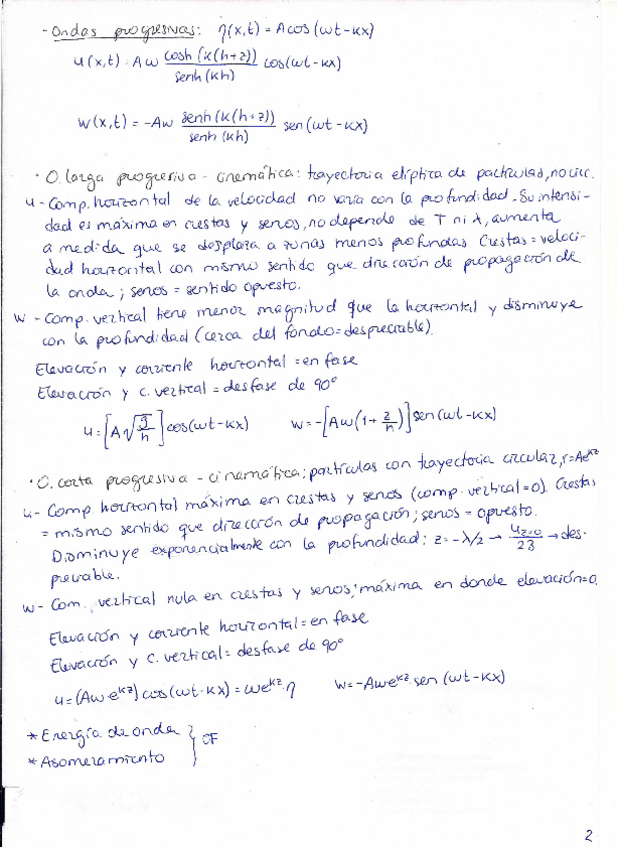 - Ondas progresivas: η(x,t) = A cos (ωt - kx)
u(x,t) = Aω cosh (k(h+z)) / senh (kh) cos(ωt - kx)
w(x,t) = -Aω senh (k(h+z)) / senh (kh) sen(ωt - kx)
· O. larga progresiva - cinemática: trayectoria elíptica de partículas, no circ.
u - Comp. horizontal de la velocidad no varía con la profundidad. Su intensi-
dad es máxima en crestas y senos, no depende de T ni λ, aumenta
a medida que se desplaza a zonas menos profundas. Crestas = veloci-
dad horizontal con mismo sentido que dirección de propagación de
la onda; senos = sentido opuesto.
w - Comp. vertical tiene menor magnitud que la horizontal y disminuye
con la profundidad (cerca del fondo = despreciable).
Elevación y corriente horizontal = en fase
Elevación y c. vertical = desfase de 90°
u = [A√(g/h)] cos(ωt - kx) w = -[Aω(1 + z/h)] sen(ωt - kx)
· O. corta progresiva - cinemática: partículas con trayectoria circular, r = Ae^kz
u - Comp. horizontal máxima en crestas y senos (comp. vertical = 0). Crestas
= mismo sentido que dirección de propagación; senos = opuesto.
Disminuye exponencialmente con la profundidad: z = -λ/2 → u z=0 / 23 → des-
preciable.
w - Com. vertical nula en crestas y senos; máxima en donde elevación = 0.
Elevación y corriente horizontal = en fase
Elevación y c. vertical = desfase de 90°
u = (Aω e^kz) cos(ωt - kx) = ωe^kz · η w = -Aωe^kz · sen (ωt - kx)
* Energía de onda } CF
* Asomeramiento
2